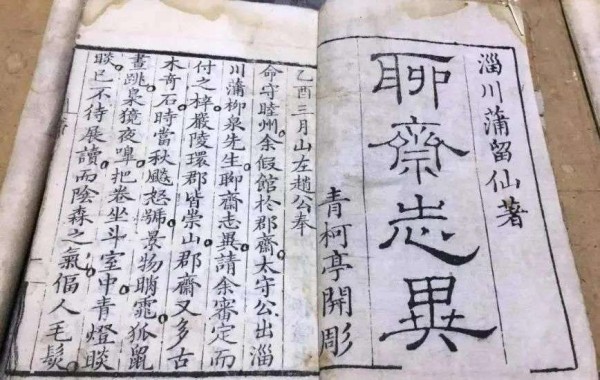 淄川蒲留仙著
聊齋志異
青柯亭開彫
乙酉三月山左趙公奉
命守睦州余假館於郡齋太守公出淄
川蒲柳泉先生聊齋志異請余審定而
付之梓嚴陵環郡皆崇山郡齋又多古
木奇石時當秋飇怒號景物睄窱狐鼠
晝跳梟獍夜嘷把卷坐斗室中青燈睒
睒已不待展讀而陰森之氣偪人毛髮